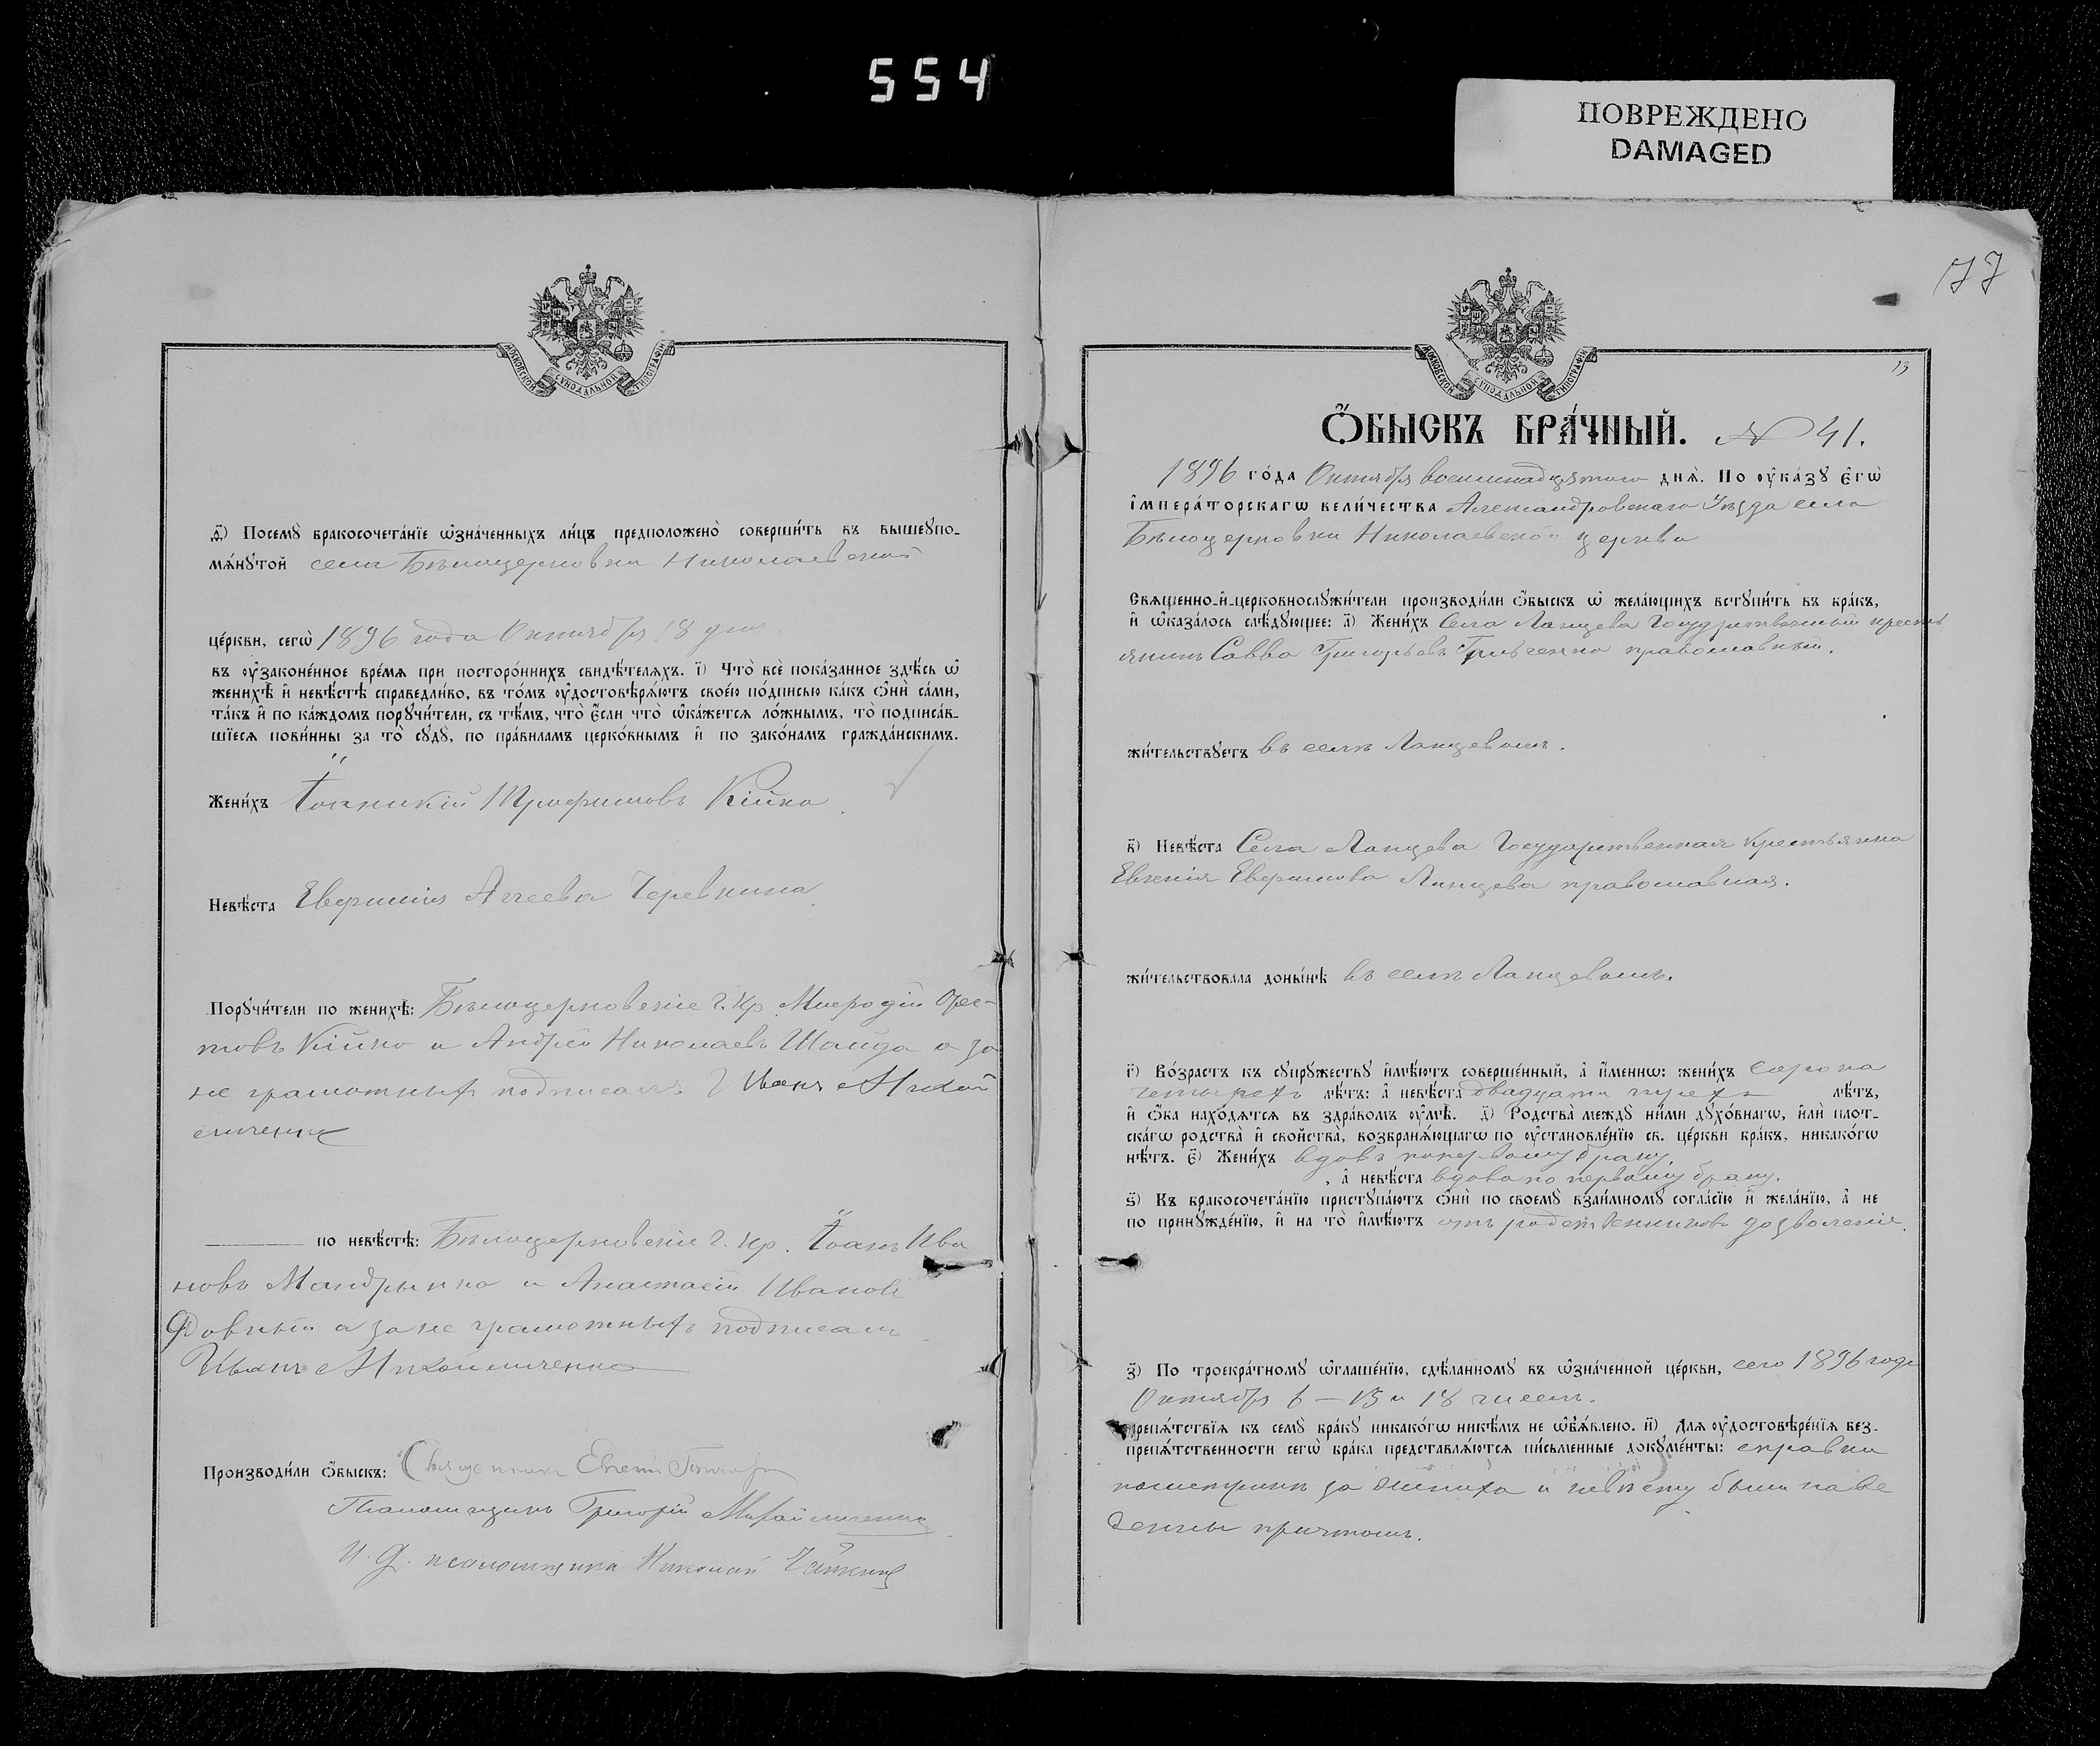 554
ПОВРЕЖДЕНО
DAMAGED
МОСКОВСКОЙ СѴНОДАЛЬНОЙ ТИПОГРАФІИ
ѳ҃) Посемꙋ̀ бракосочета́нїе ѡ҆зна́ченныхъ ли́цъ предположено̀ соверши́ть въ вышеꙋпо-
мѧ́нꙋтой села Бѣлоцерковки Николаевской
це́ркви, сегѡ̀ 1896 года Октября 18 дня
въ ѹ҆зако́ненное вре́мѧ при посторо́ннихъ свидѣ́телѧхъ. і҃) Что̀ всѐ пока́занное здѣ́сь ѡ҆
женихѣ̀ и҆ невѣ́стѣ справедли́во, въ то́мъ ѹ҆достовѣрѧ́ютъ свое́ю по́дписью ка́къ ѻ҆нѝ са́ми,
та́къ и҆ по ка́ждомъ порꙋчи́тели, съ тѣ́мъ, что̀ є҆́сли что̀ ѡ҆ка́жетсѧ ло́жнымъ, то̀ подписа́в-
шїесѧ пови́нны за то̀ сꙋдꙋ̀, по пра́виламъ церко́внымъ и҆ по зако́намъ гражда́нскимъ.
Жени́хъ Іоанникій Трофимовъ Кійко
Невѣ́ста Евфимія Аггеева Черевкина
Порꙋчи́тели по женихѣ̀: Бѣлоцерковскіе г. кр. Мефодій Орес-
товъ Кійко и Андрей Николаевъ Шайда а за
не грамотныхъ подписалъ Иванъ Михай
личенко
по невѣ́стѣ: Бѣлоцерковскіе г. кр. Іоанъ Ива
новъ Мандрыко и Анастасій Ивановъ
а за не грамотныхъ подписалъ
Иванъ Михайличенко
Производи́ли ѻ҆́быскъ: Священникъ Евгеній
Псаломщикъ Григорій Михайличенко
И. Д. псаломщика Николай
177
МОСКОВСКОЙ СѴНОДАЛЬНОЙ ТИПОГРАФІИ
13
Ѻ҆́БЫСКЪ БРА́ЧНЫЙ. № 41.
1896 го́да Октября восемнадцятаго днѧ̀. По ѹ҆ка́зꙋ Є҆гѡ̀
і҆мпера́торскагѡ вели́чества Александровскаго Уѣзда села
Бѣлоцерковки Николаевской церкви
Свѧще́нно-и҆-церковнослꙋжи́тели производи́ли ѻ҆́быскъ ѡ҆ жела́ющихъ встꙋпи́ть въ бра́къ,
и҆ ѡ҆каза́лось слѣ́дꙋющее: а҃) Жени́хъ Села Ланцева Государственный кресть
янинъ Савва Григорьевъ Гриченко православный.
жи́тельствꙋетъ въ селѣ Ланцевомъ.
в҃) Невѣ́ста Села Ланцева Государственная крестьянка
Евгенія Евфимова Ланцева православная.
жи́тельствовала доны́нѣ въ селѣ Ланцевомъ.
г҃) Во́зрастъ къ сꙋпрꙋ́жествꙋ и҆мѣ́ютъ соверше́нный, а҆ и҆́меннѡ: жени́хъ сорока
четырехъ лѣ́тъ: а҆ невѣ́ста двадцати трехъ лѣ́тъ,
и҆ ѻ҆́ба нахо́дѧтсѧ въ здра́вомъ ѹ҆мѣ̀. д҃) Родства̀ междꙋ̀ ни́ми дꙋхо́внагѡ, и҆лѝ плот-
ска́гѡ родства̀ и҆ сво́йства̀, возбранѧ́ющагѡ по ѹ҆становле́нїю св. це́ркви бра́къ, никако́гѡ
нѣ́тъ. є҃) Жени́хъ вдовъ по первому браку,
, а҆ невѣ́ста вдова по первому браку.
ѕ҃) Къ бракосочета́нїю пристꙋпа́ютъ ѻ҆нѝ по своемꙋ̀ взаи́мномꙋ согла́сїю и҆ жела́нїю, а҆ не
по принꙋжде́нїю, и҆ на то̀ и҆мѣ́ютъ отъ родственниковъ дозволеніе.
з҃) По троекра́тномꙋ ѡ҆глаше́нїю, сдѣ́ланномꙋ въ ѡ҆зна́ченной це́ркви, сего 1896 года
Октября 6 – 13 и 18 чиселъ.
препѧ́тствїѧ къ семꙋ̀ бра́кꙋ никако́гѡ никѣ́мъ не ѡ҆б̾ѧ́влено. и҃) Длѧ ѹ҆достовѣре́нїѧ без-
препѧ́тственности сегѡ̀ бра́ка представлѧ́ютсѧ пи́сьменные докꙋме́нты: справки
по метрикѣ за жениха и невѣсту были наве
дены причтомъ.